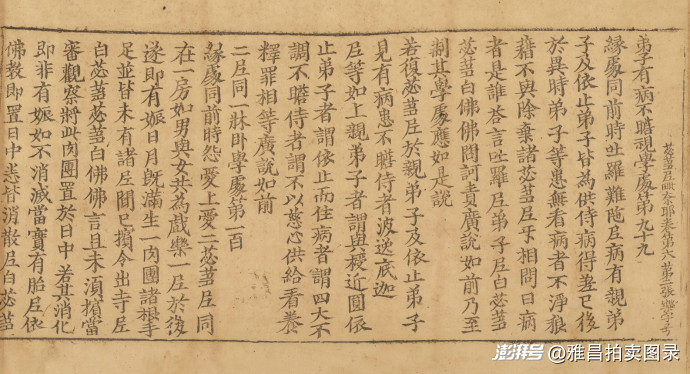 苾蒭尼毗奈耶卷第六 第三張
弟子有病不瞻視學處第九十九
緣處同前時吐羅難陁尼病有親弟
子及依止弟子皆為供侍病得差已後
於異時弟子等患無看病者不淨狼
藉不與除棄諸苾蒭尼見相問曰病
者是誰答言吐羅尼弟子尼白苾蒭
苾蒭白佛佛問訶責廣說如前乃至
制其學處應如是說
若復苾蒭尼於親弟子及依止弟子
見有病患不瞻侍者波逸底迦
尼等如上親弟子者謂與授近圓依
止弟子者謂依止而住病者謂四大不
調不瞻侍者謂不以慈心供給看養
釋罪相等廣說如前
二尼同一牀卧學處第一百
緣處同前時怨愛上愛二苾蒭尼同
在一房如男與女共為戲樂一尼於後
遂即有娠日月旣滿生一肉團諸根手
足並皆未有諸尼聞已擯令出寺尼
白苾蒭苾蒭白佛佛言且未湏擯當
審觀察將此肉團置於日中若其消化
即非有娠如不消滅當實有胎尼依
佛教即置日中悉皆消散尼白苾蒭
澎湃号 @雅昌拍卖图录